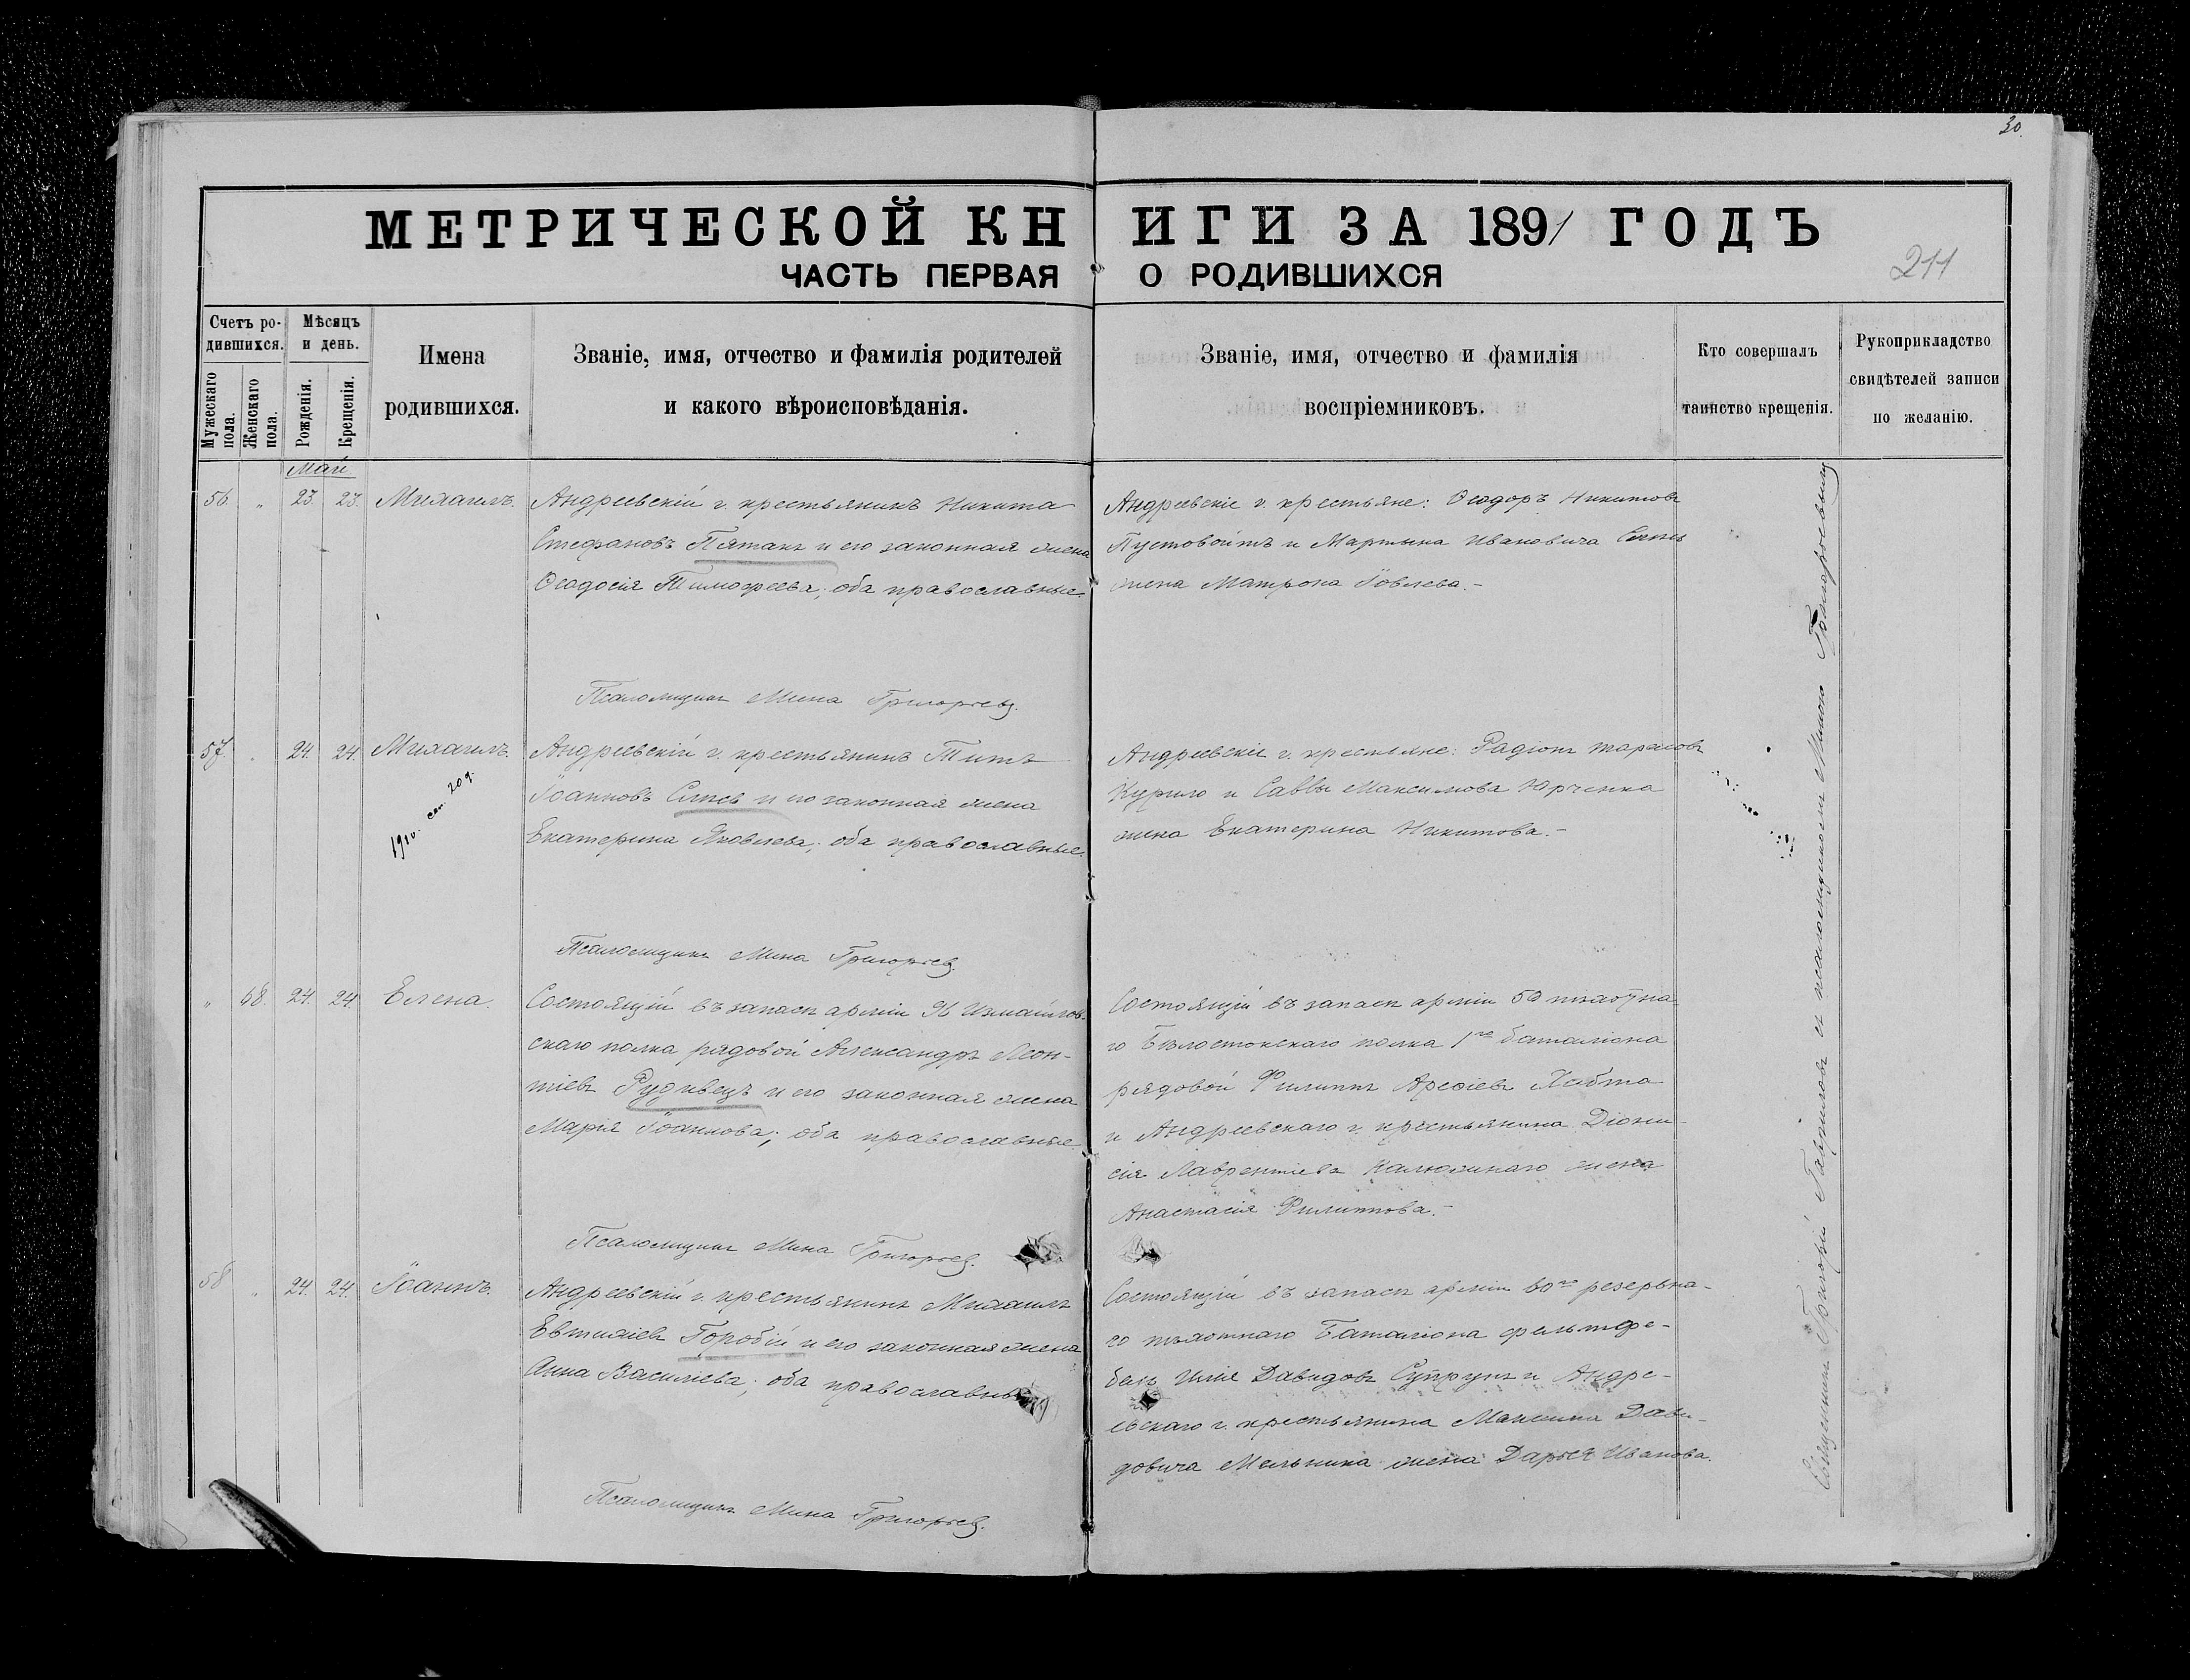 30.
МЕТРИЧЕСКОЙ КНИГИ ЗА 1891 ГОДЪ
ЧАСТЬ ПЕРВАЯ О РОДИВШИХСЯ
211
Счетъ ро-
дившихся.
Мужескаго пола.
Женскаго пола.
Мѣсяцъ
и день.
Рожденія.
Крещенія.
Имена
родившихся.
Званіе, имя, отчество и фамилія родителей
и какого вѣроисповѣданія.
Званіе, имя, отчество и фамилія
воспріемниковъ.
Кто совершалъ
таинство крещенія.
Рукоприкладство
свидѣтелей записи
по желанію.
Май
56. " 23. 23. Михаилъ.
Андреевскій г. крестьянинъ Никита
Стефановъ Пятакъ и его законная жена
Ѳеодосія Тимофеева; оба православные.
Андреевскіе г. крестьяне: Ѳеодоръ Никитовъ
Пустовойтъ и Мартына Ивановича
жена Матрона Іовлева.-
Псаломщикъ Мина Григорьевъ.
57. " 24. 24. Михаилъ.
1910. сен. 20 д.
Андреевскій г. крестьянинъ Титъ
Іоанновъ и его законная жена
Екатерина Яковлева; оба православные.
Андреевскіе г. крестьяне: Радіонъ Тарасовъ
Курило и Саввы Максимова Юрченка
жена Екатерина Никитова.-
Псаломщикъ Мина Григорьевъ.
" 68 24. 24. Елена.
Состоящій въ запасѣ арміи 96 Измаилов-
скаго полка рядовой Александръ Леон-
тіевъ Рудивецъ и его законная жена
Марія Іоаннова; оба православные
Состоящій въ запасѣ арміи 50 пѣхотна-
го Бѣлостокскаго полка 1го баталіона
рядовой Филиппъ Арефіевъ
и Андреевскаго г. крестьянина Діони-
сія Лаврентіева Калюжнаго жена
Анастасія Филиппова.-
Псаломщикъ Мина Григорьевъ.
58 " 24. 24. Іоаннъ.
Андреевскій г. крестьянинъ Михаилъ
Евтихіевъ Горобій и его законная жена
Анна Василіева; оба православные
Состоящій въ запасѣ арміи резервна-
го пѣхотнаго Баталіона фельтфе-
бель Илія Давидовъ Супрунъ и Андре-
евскаго г. крестьянина Максима Дави-
довича Мельника жена Дарья Иванова.
Псаломщикъ Мина Григорьевъ.
Священникъ Григорій Гавриловъ съ псаломщикомъ Миною Григорьевымъ